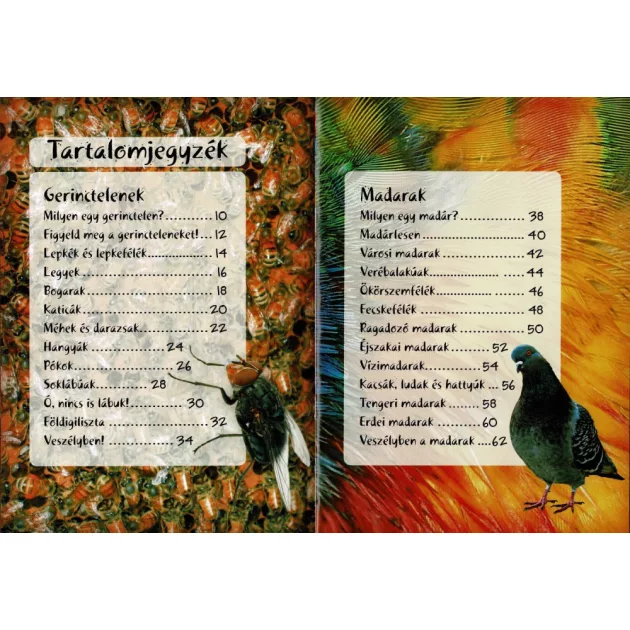 Tartalomjegyzék
Gerinctelenek
Milyen egy gerinctelen?............10
Figyeld meg a gerincteleneket!...12
Lepkék és lepkefélék..................14
Legyek .................................. 16
Bogarak ................................. 18
Katicák .................................20
Méhek és darazsak.................. 22
Hangyák .................. 24
Pókok ........................ 26
Soklábúak............... 28
Ó, nincs is lábuk!............. 30
Földigiliszta ..................... 32
Veszélyben! .................. 34
Madarak
Milyen egy madár?................. 38
Madárlesen............................. 40
Városi madarak ...................... 42
Verébalakúak......................... 44
Ökörszemfélék....................... 46
Fecskefélék ........................... 48
Ragadozó madarak ................. 50
Éjszakai madarak .......... 52
Vízimadarak.................54
Kacsák, ludak és hattyúk ... 56
Tengeri madarak ........ 58
Erdei madarak ............60
Veszélyben a madarak ....62